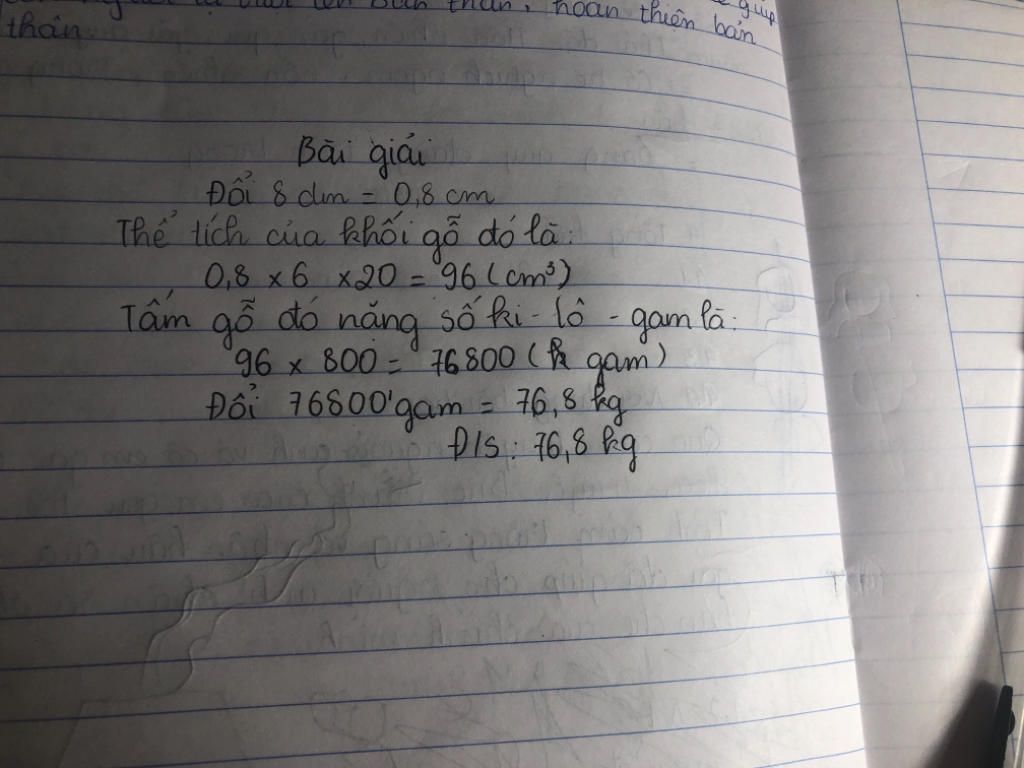 thân, hoàn thiện bản
thân
Bài giải
Đổi 8 dm = 0,8 cm
Thể tích của khối gỗ đó là:
0,8 x 6 x 20 = 96 (cm³)
Tấm gỗ đó nặng số ki - lô - gam là:
96 x 800 = 76800 (gam)
Đổi 76800 gam = 76,8 kg
Đ/S : 76,8 kg